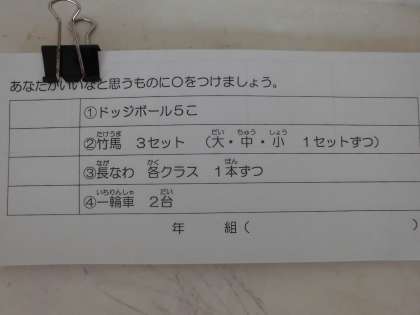 あなたがいいなと思うものに○をつけましょう。
①ドッジボール5こ
②竹馬 3セット (大・中・小 1セットずつ)
③長なわ 各クラス 1本ずつ
④一輪車 2台
年 組( )